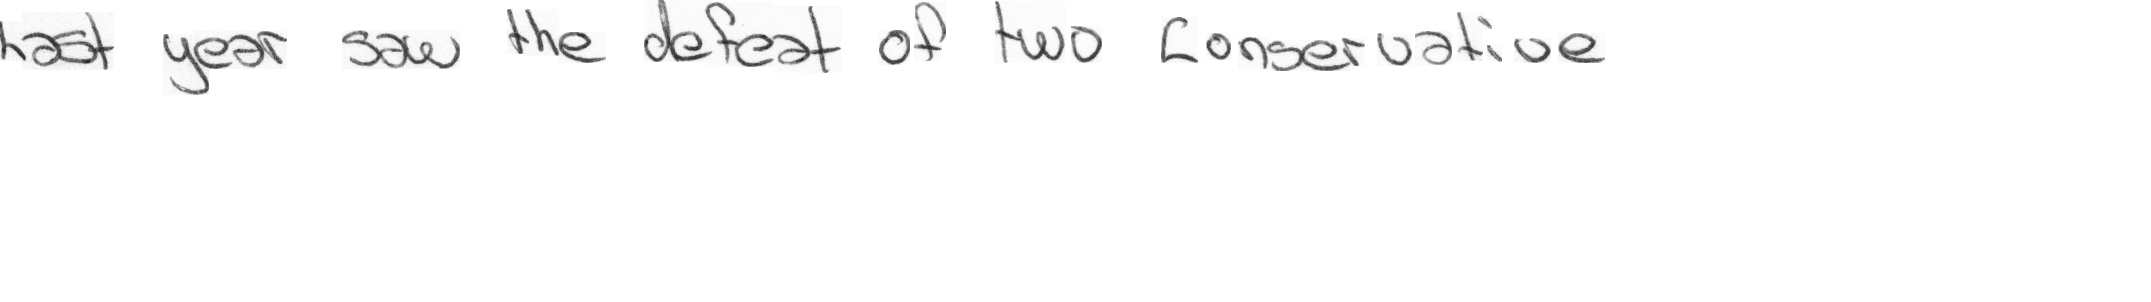 Last year saw the defeat of two Conservative